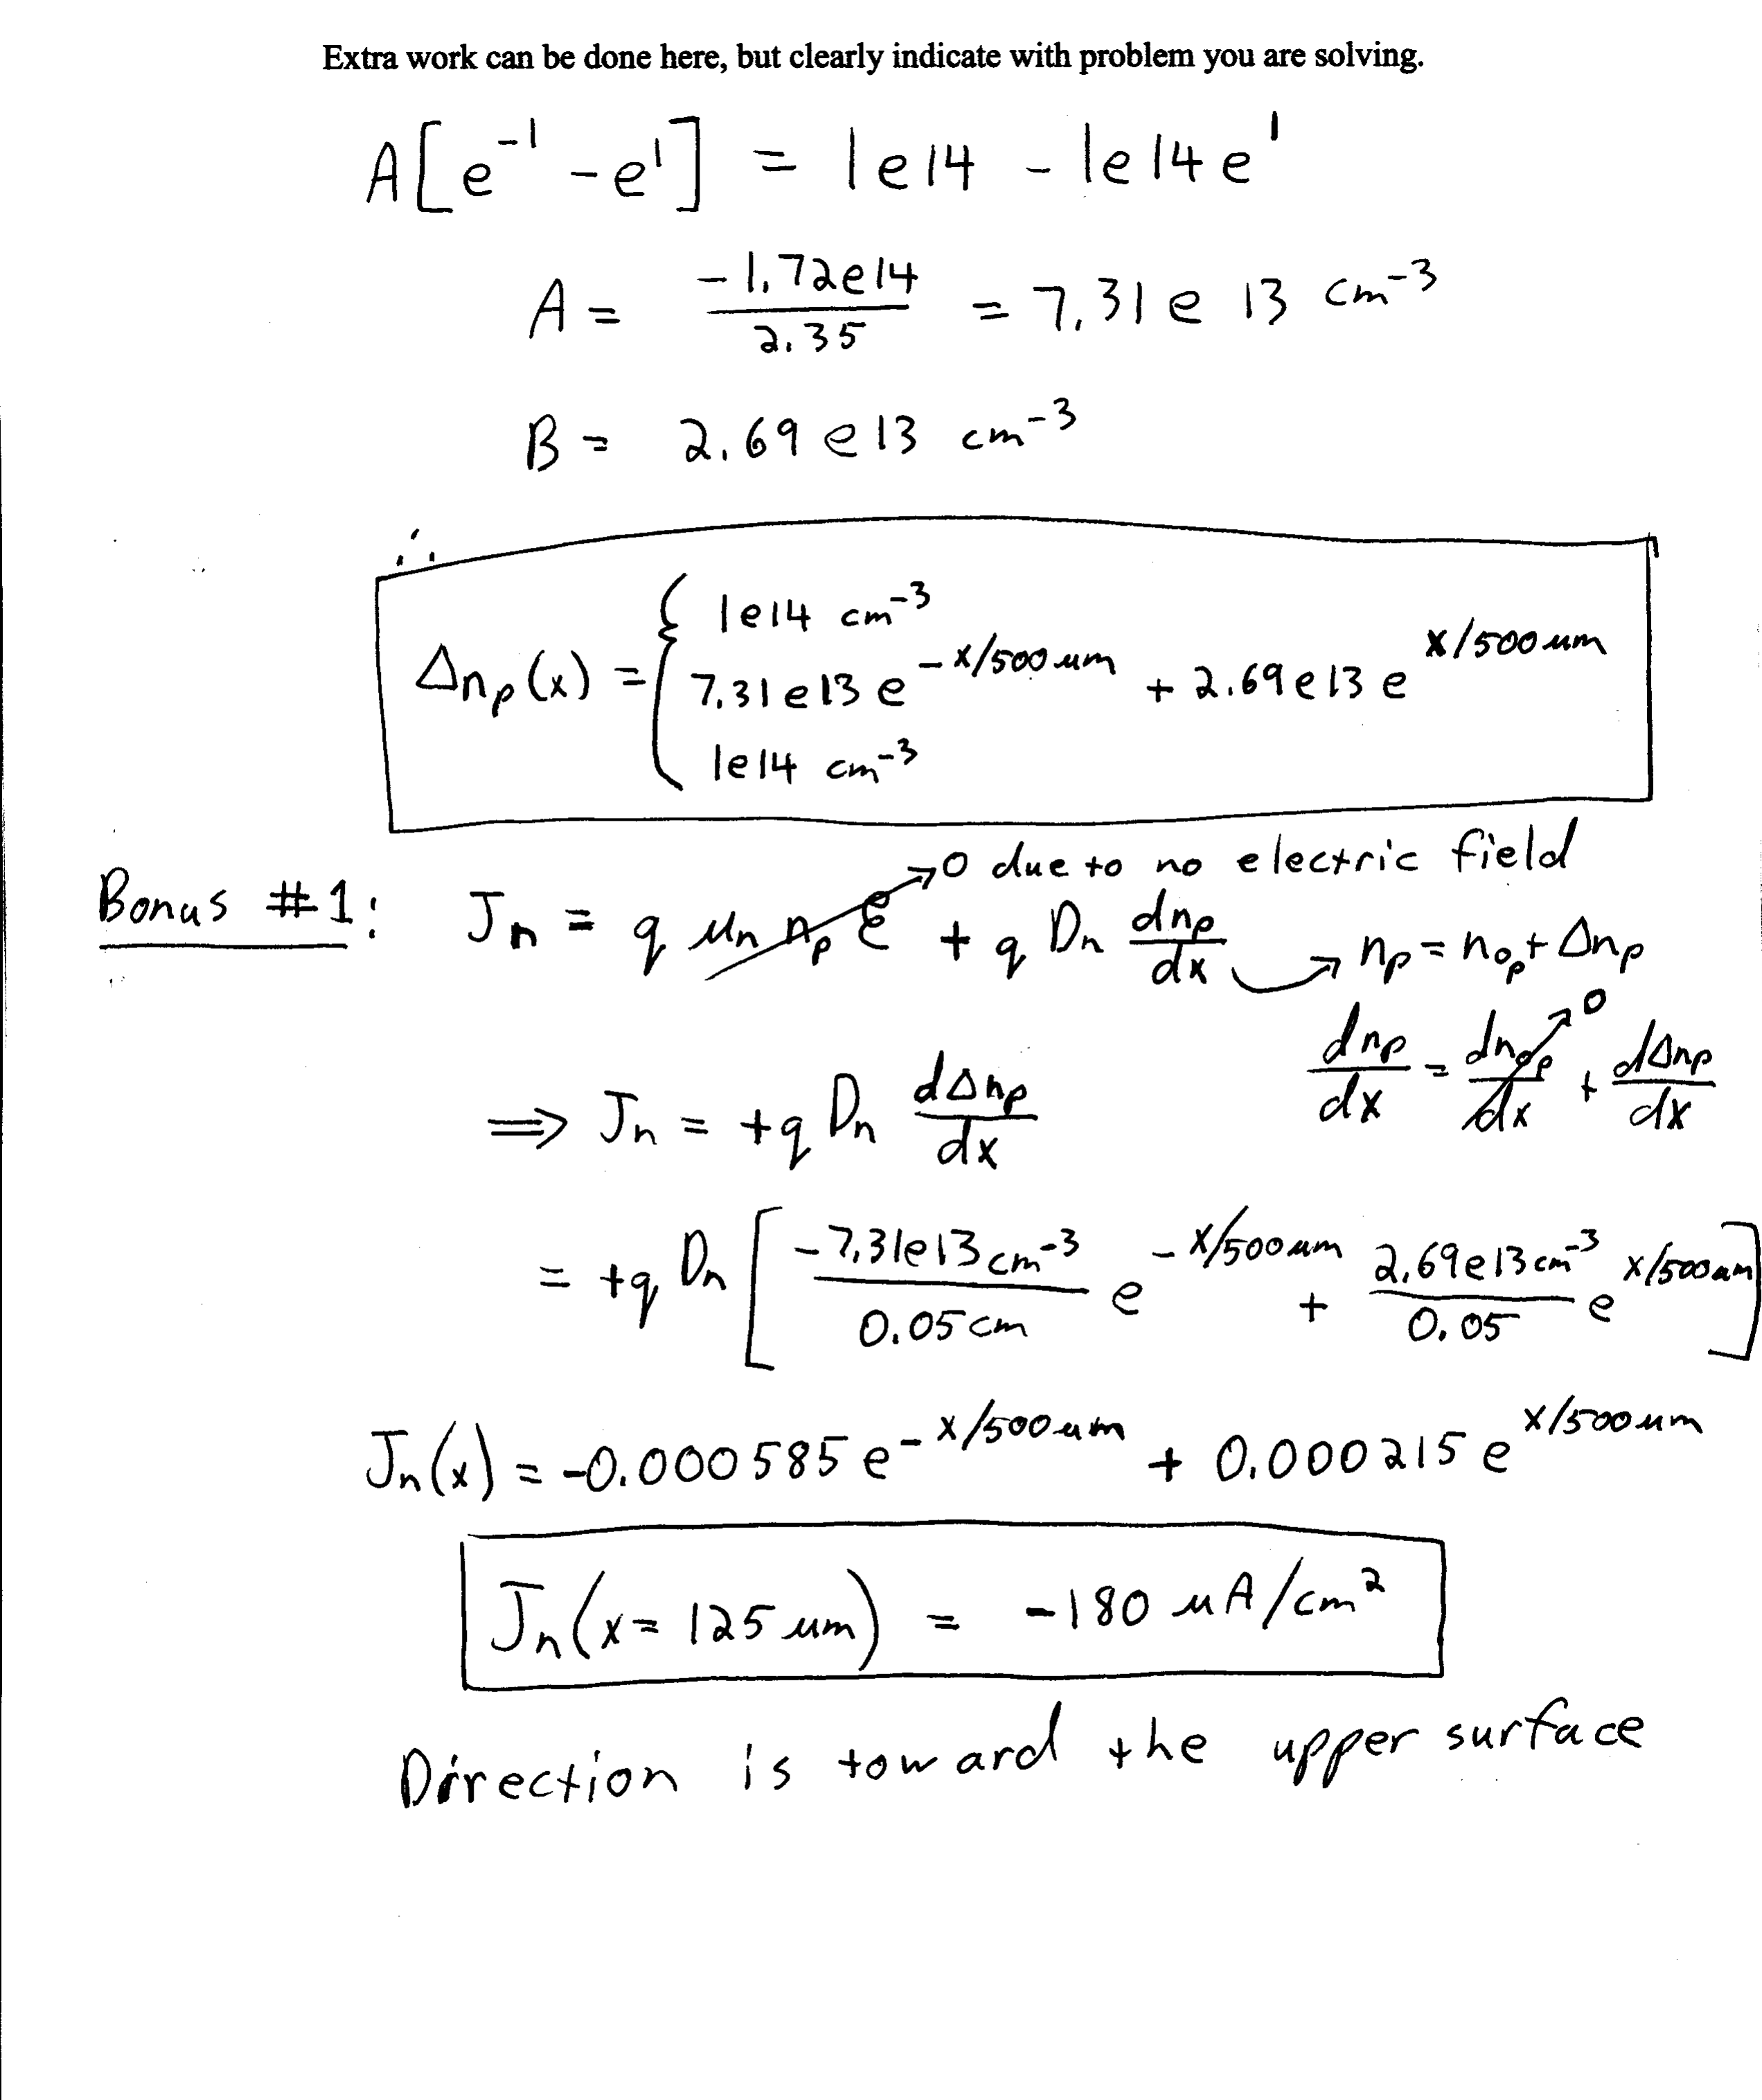 Extra work can be done here, but clearly indicate with problem you are solving.
A[e^-1 - e^1] = 1e14 - 1e14 e^1
A = -1.72e14 / 2.35 = 7.31 e 13 cm^-3
B = 2.69 e 13 cm^-3
∴
1e14 cm^-3
Δnp(x) = { 7.31 e 13 e^-x/500 um + 2.69 e 13 e^x/500 um
1e14 cm^-3
→0 due to no electric field
Bonus #1: Jn = q μn np E + q Dn dnp/dx → np = nop + Δnp
dnp/dx = dnop/dx →0 + dΔnp/dx
⇒ Jn = +q Dn dΔnp/dx
= +q Dn [ -7.31e13 cm^-3 / 0.05 cm e^-x/500 um + 2.69e13 cm^-3 / 0.05 e^x/500 um ]
Jn(x) = -0.000585 e^-x/500 um + 0.000215 e^x/500 um
Jn(x = 125 um) = -180 uA/cm^2
Direction is toward the upper surface